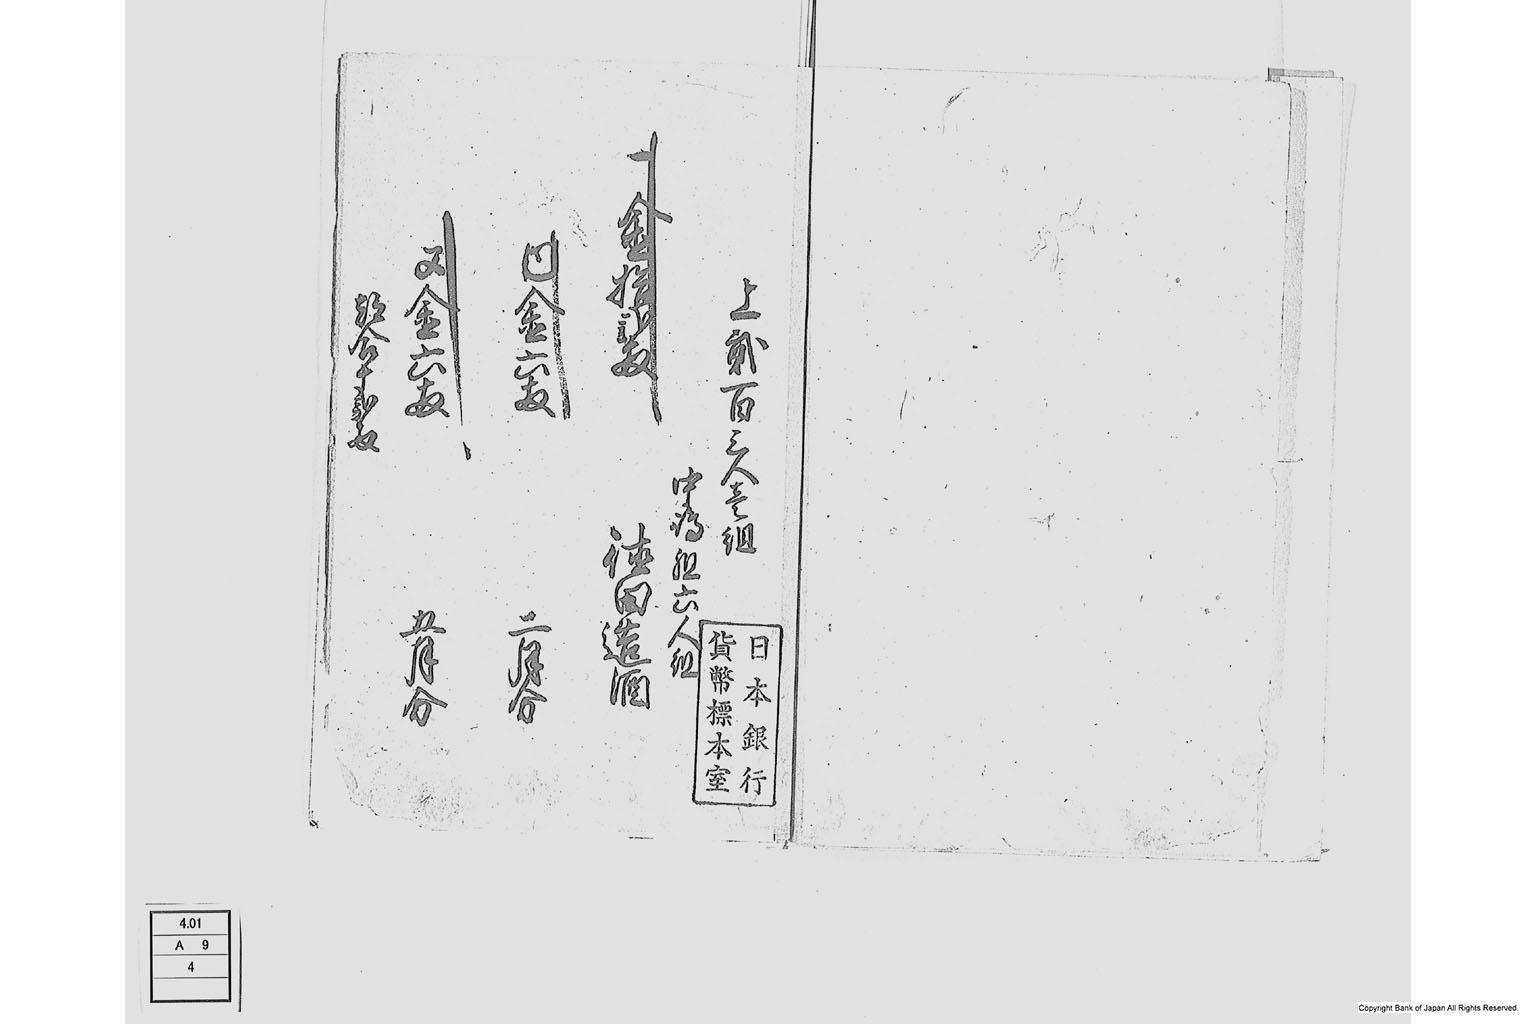 上貳百三人壱組
中 組六人組
一金拾弐枚
徳田造酒
内金六枚
二月分
又金六枚
五月分
合十弐枚
日本銀行
貨幣標本室
4.01
A 9
4
Copyright Bank of Japan All Rights Reserved.